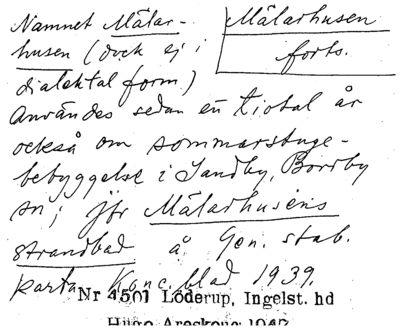 Mälarhusen
forts.
Namnet Mälar-
husen (dock ej i
dialektal form.)
Användes sedan en tiotal år
också om sommarstuge-
bebyggelse i Sandby, Borrby
sn; jfr Mälarhusens
strandbad å Gen. stab.
karta Konc. blad 1939.
Nr 4501 Löderup, Ingelst. hd
Hugo Areskoug 1947